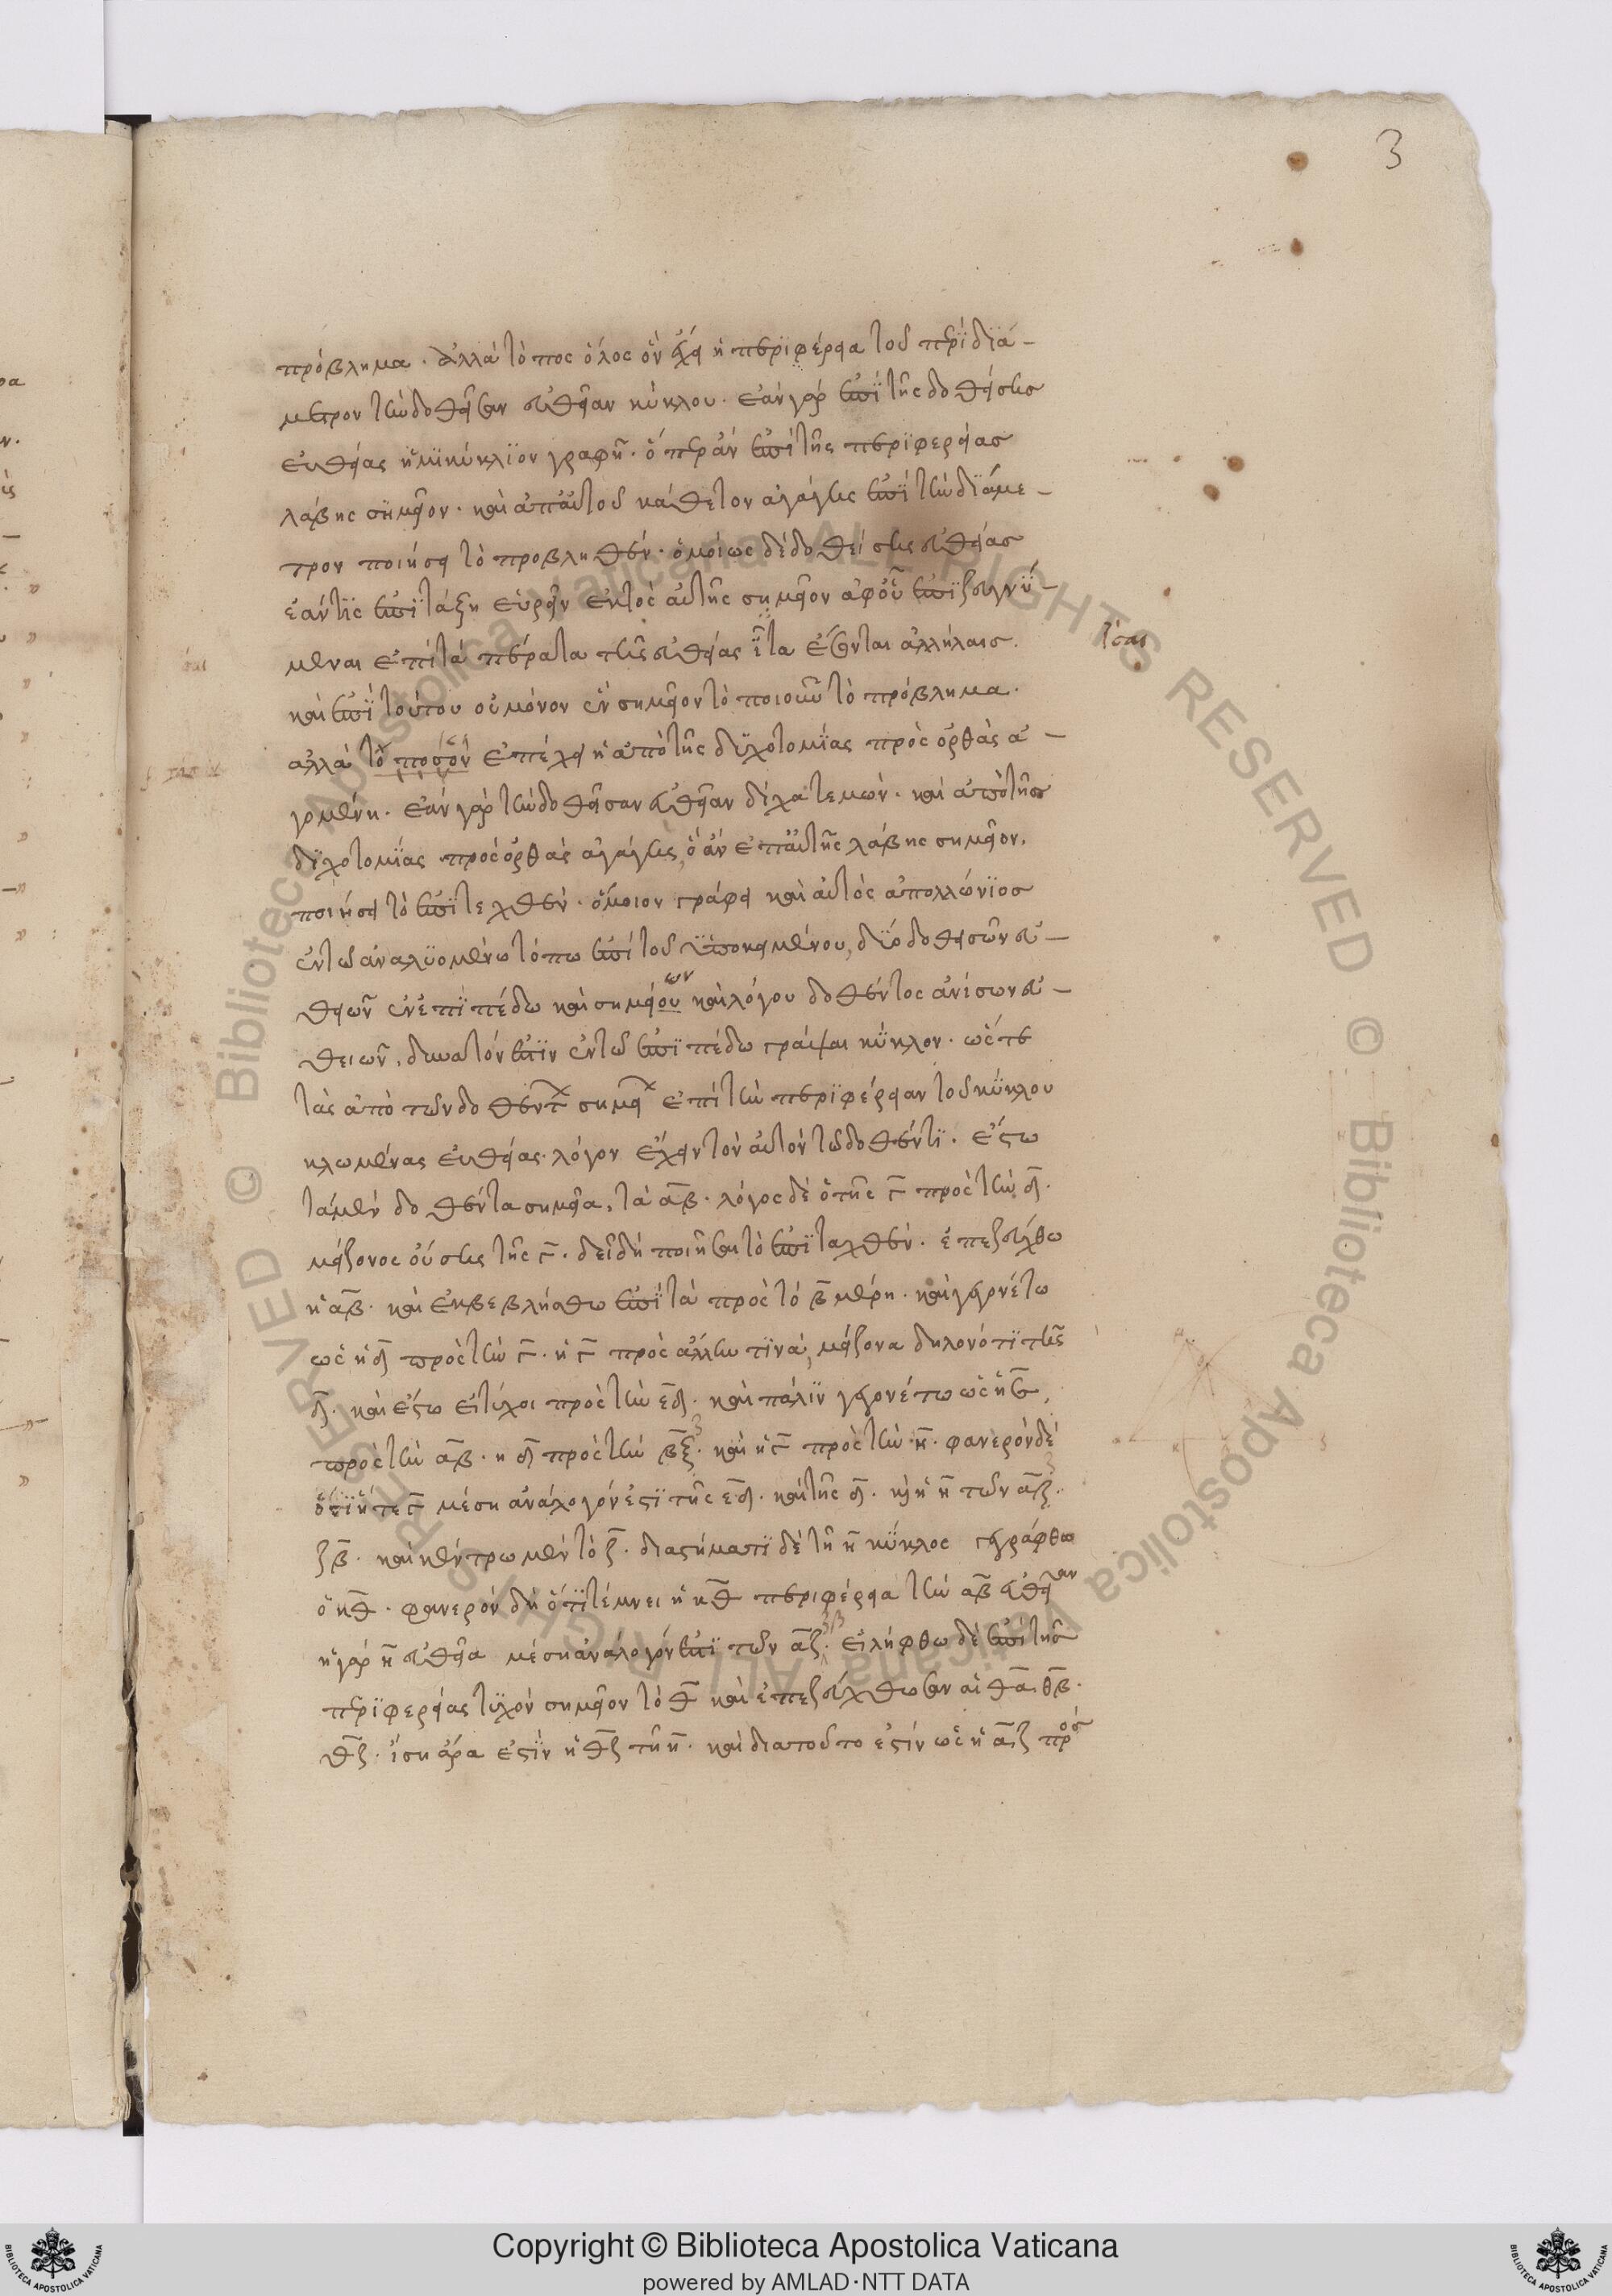 3
πρόβλημα· ἀλλὰ τόπος ὅλος ὃν ἔχει ἡ περϊφέρεια τοῦ περὶ διά-
μετρον τὴν δοθεῖσαν εὐθεῖαν κύκλου· ἐὰν γὰρ ἐπὶ τῆς δοθείσης
εὐθείας ἡμϊκύκλϊον γραφῆ· ὅπερ ἂν ἐπὶ τῆς περϊφερείας
λάβης σημεῖον· καὶ ἀπ' αὐτοῦ κάθετον ἀγάγης ἐπὶ τὴν διάμε-
τρον ποιήσει τὸ προβληθέν· ὁμοίως δὲ δοθείσης εὐθείας
ἐάν τϊς ἐπιτάξη εὑρεῖν ἐκτὸς αὐτῆς σημεῖον ἀφ' οὗ ἐπιζευγνύ-
μεναι ἐπὶ τὰ πέρατα τῆς εὐθείας ἴτα ἔσονται ἀλλήλαισ·
ἴσαι
καὶ ἐπὶ τούτου οὐ μόνον ἓν σημεῖον τὸ ποιοῦν τὸ πρόβλημα·
ἀλλὰ τὸ ποσὸν ἐπέχει ἡ ἀπὸ τῆς διχοτομίας πρὸς ὀρθὰς ἀ-
γομένη· ἐὰν γὰρ τὴν δοθεῖσαν εὐθεῖαν δίχα τεμών· καὶ ἀπὸ τῆσ
διχοτομίας πρὸς ὀρθὰς ἀγάγης, ὃ ἂν ἐπ' αὐτῆς λάβης σημεῖον.
ποιήσει τὸ ἐπιτεχθέν· ὅμοιον γράφει καὶ αὐτὸς ἀπολλώνϊοσ
ἐν τῶ ἀναλυομένω τόπω ἐπὶ τοῦ ὑποκειμένου, δύο δοθεισῶν εὐ-
θειῶν ἐν ἐπϊπέδω καὶ σημείου καὶ λόγου δοθέντος ἀνίσων εὐ-
ων
θειῶν, δυνατόν ἐστιν ἐν τῶ ἐπιπέδω γράψαι κύκλον· ὥστε
τὰς ἀπὸ τῶν δοθέντ σημεί ἐπὶ τὴν περϊφέρειαν τοῦ κύκλου
κλωμένας εὐθείας· λόγον ἔχειν τὸν αὐτὸν τῶ δοθέντι· ἔστω
τὰ μὲν δοθέντα σημεῖα, τὰ αβ· λόγος δὲ ὁ τῆς γ πρὸς τὴν δ·
μείζονος οὔσης τῆς γ· δεῖ δὴ ποιῆσαι τὸ ἐπιταχθέν· ἐπεζεύχθω
ἡ αβ· καὶ ἐκβεβλήσθω ἐπὶ τὰ πρὸς τὸ β μέρη· καὶ γεγονέτω
ὡς ἡ δ πρὸς τὴν γ· ἡ γ πρὸς ἄλλην τινὰ, μείζονα δηλονότι τῆς
δ· καὶ ἔστω εἰ τύχοι πρὸς τὴν εδ· καὶ πάλιν γεγονέτω ὡς ἡ ε,
πρὸς τὴν αβ· ἡ δ πρὸς τὴν βξ· καὶ ἡ γ πρὸς τὴν κ· φανερὸν δὲ
ὅτι ἥ τε γ μέση ἀνάλογόν ἐστι τῆς εδ· καὶ τῆς δ· καὶ ἡ κ τῶν αζ·
ζβ· καὶ κέντρω μὲν τὸ ζ· διαστήματι δὲ τῆ κ κύκλος γεγράφθω
ὁ κθ· φανερὸν δὴ ὅτι τέμνει ἡ κθ περιφέρεια τὴν αβ εὐθεῖαν
ἡ γὰρ κ εὐθεῖα μέση ἀνάλογόν ἐστι τῶν αζ· ζβ εἰλήφθω δὲ ἐπὶ τῆσ
περϊφερείας τυχὸν σημεῖον τὸ θ καὶ ἐπεζεύχθωσαν αἱ θα, θβ·
θζ· ἴση ἄρα ἐστὶν ἡ θζ τῆ κ· καὶ διατοῦτο ἐστὶν ὡς ἡ αζ πρὸς